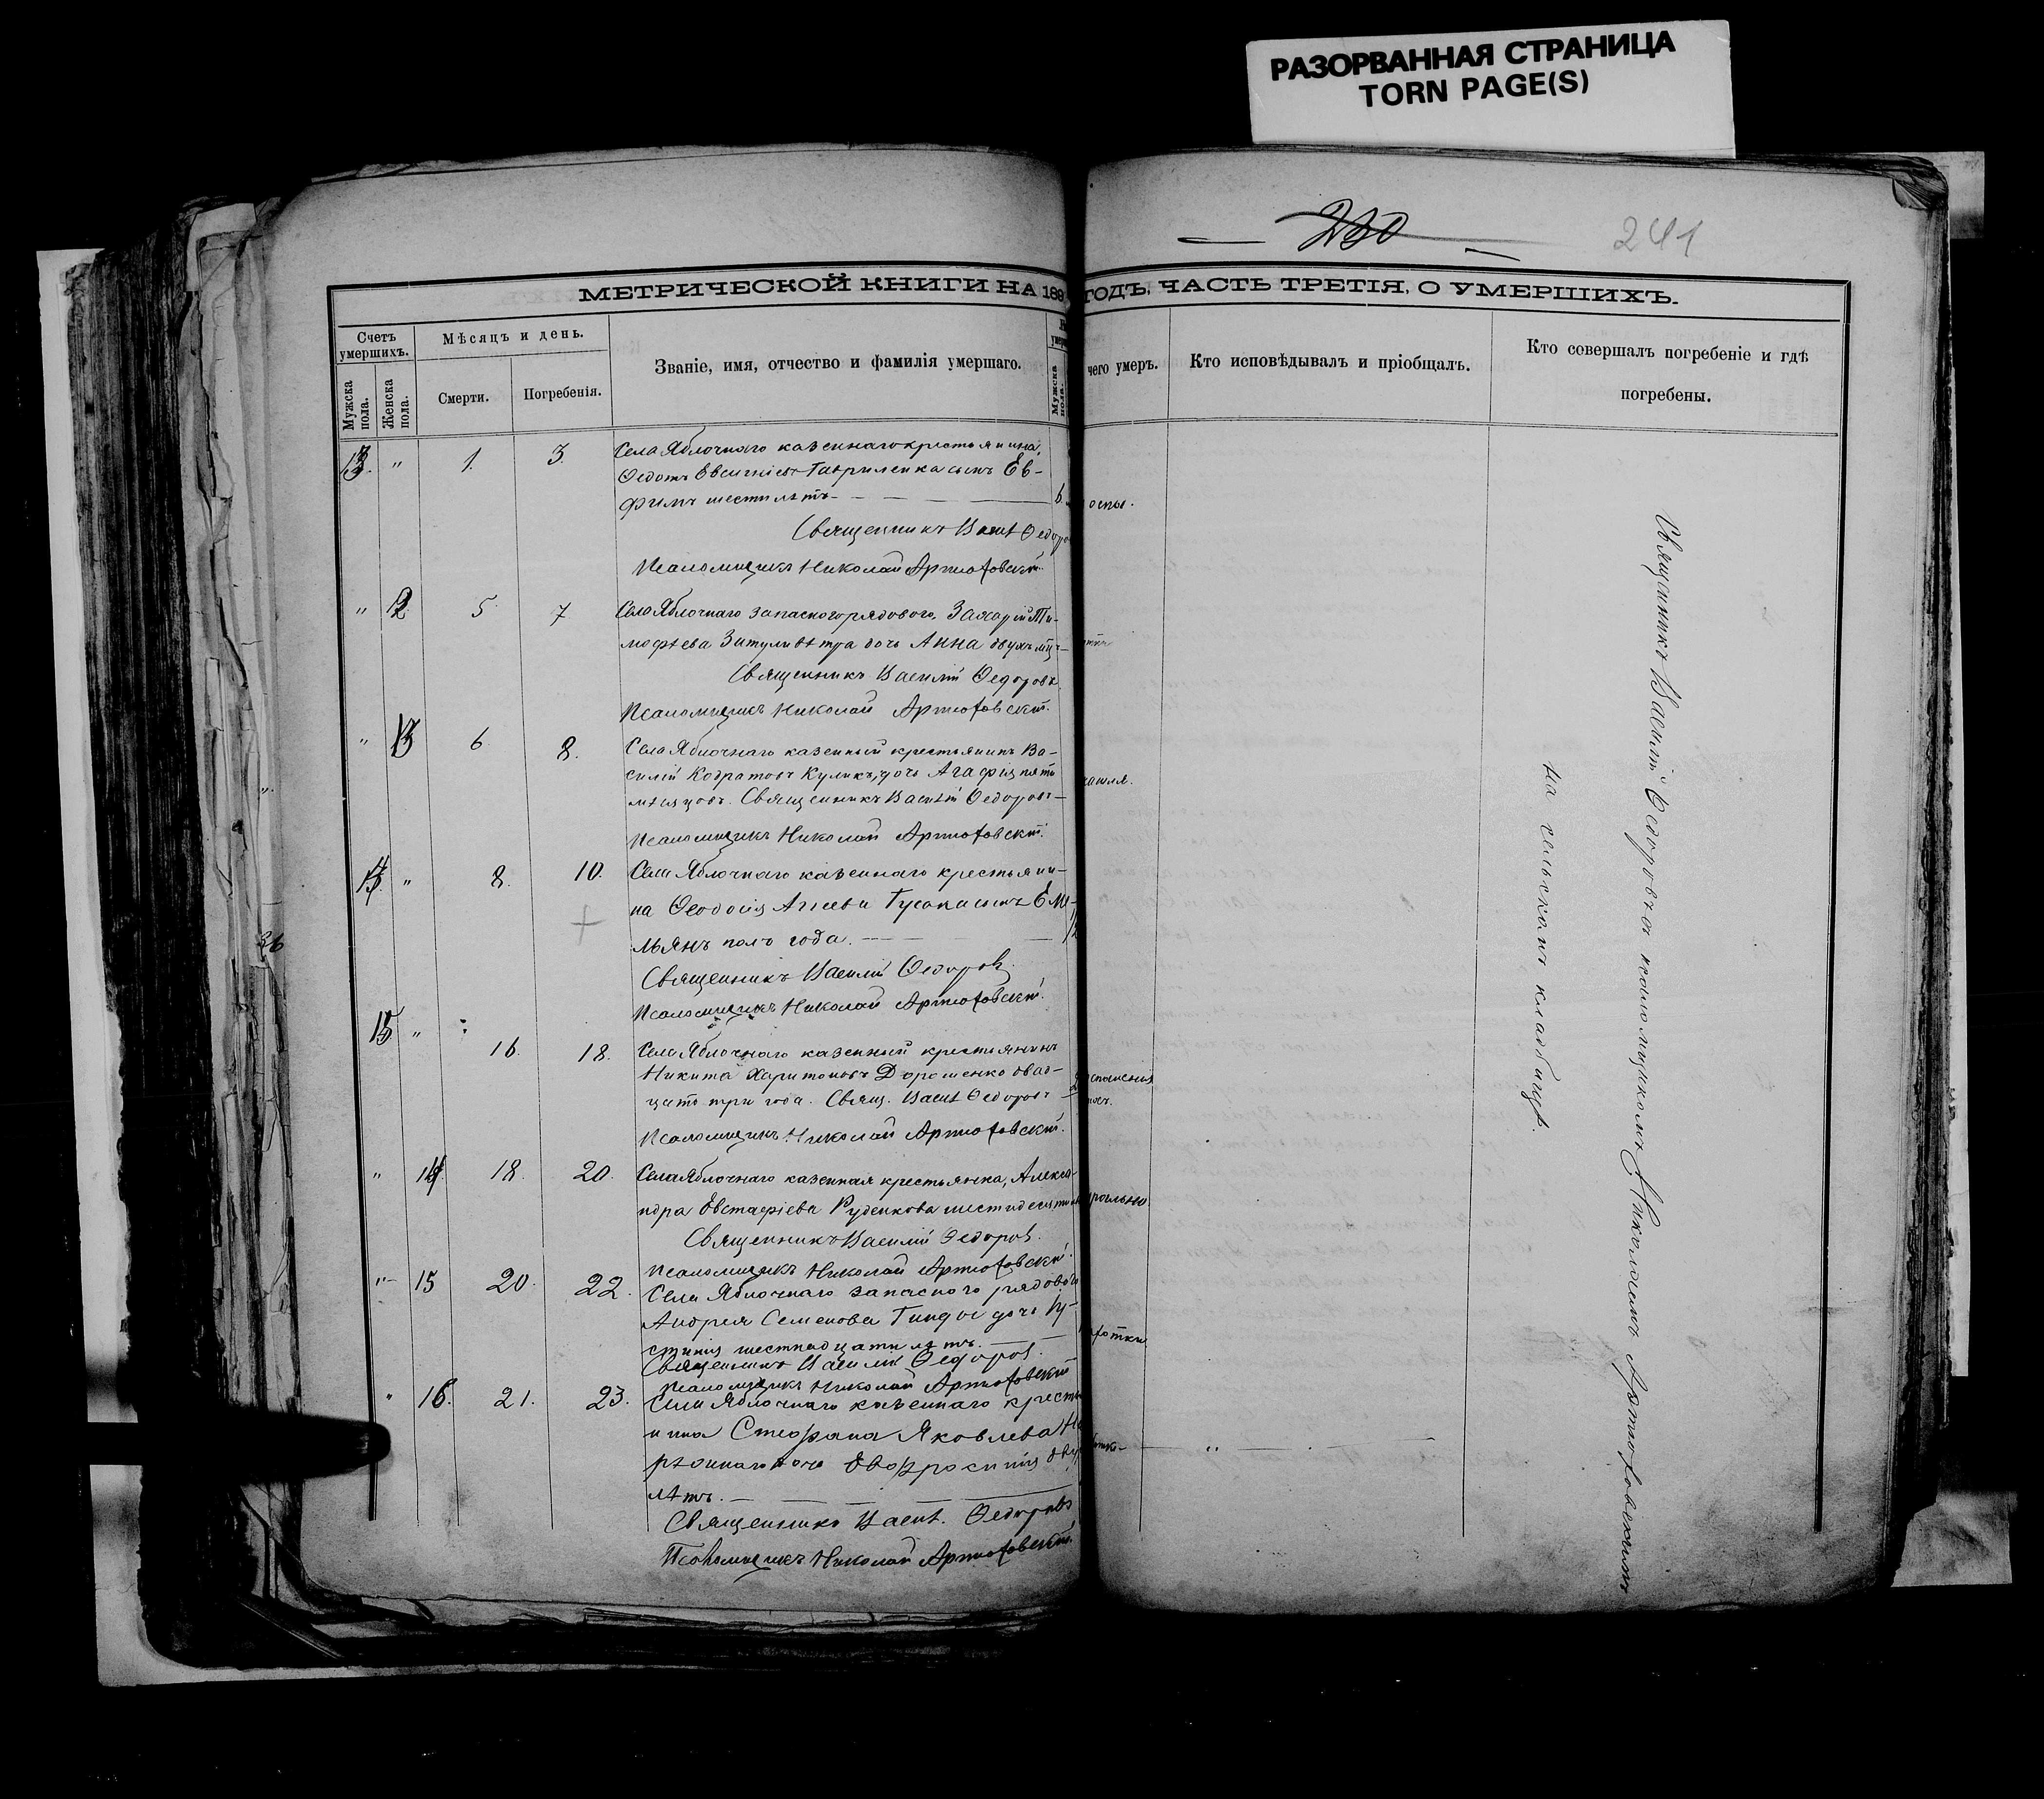 РАЗОРВАННАЯ СТРАНИЦА
TORN PAGE(S)
230
241
МЕТРИЧЕСКОЙ КНИГИ НА 189 ГОДЪ, ЧАСТЬ ТРЕТІЯ, О УМЕРШИХЪ.
Счетъ умершихъ.
Мужска пола.
Женска пола.
Мѣсяцъ и день.
Смерти.
Погребенія.
Званіе, имя, отчество и фамилія умершаго.
Мужска пола.
чего умеръ.
Кто исповѣдывалъ и пріобщалъ.
Кто совершалъ погребеніе и гдѣ
погребены.
13. " 1. 3. Села Яблочнаго казеннаго крестьянина,
Ѳедотъ Гавриленка сынъ Ев-
фимъ шести лѣтъ 6. оспы.
Священникъ Васил Ѳедоро
Псаломщикъ Николай Артюховскій.
" 12 5. 7 Села Яблочнаго запасного рядового, Захарій Ти-
мофѣева дочь Анна двухъ мѣс-
Священникъ Василій Ѳедоровъ
Псаломщикъ Николай Артюховскій.
" 13 6. 8. Села Яблочнаго казенный крестьянинъ Ва-
силій Кодратовъ Куликъ, дочь Агафія пяти
мѣсяцовъ. Священникъ Василій Ѳедоровъ кашля.
Псаломщикъ Николай Артюховскій.
14. " 8. 10. Села Яблочнаго казеннаго крестьяни-
на Ѳеодосія Агѣева Гусака сынъ Еме-
льянъ полъ года.
Священникъ Василій Ѳедоровъ
Псаломщикъ Николай Артюховскій.
15. " 16. 18. Села Яблочнаго казенный крестьянинъ
Никита Харитоновъ Дорошенко двад-
цати три года. Свящ. Васил Ѳедоровъ
Псаломщикъ Николай Артюховскій.
" 14. 18. 20. Села Яблочнаго казенная крестьянка, Алекса-
ндра Евстафіева Руденкова шестидесяти
Священникъ Василій Ѳедоровъ.
Псаломщикъ Николай Артюховскій.
" 15 20. 22. Села Яблочнаго запасного рядового
Андрея Семенова дочь Іу-
стинія шестнадцати лѣтъ.
Священникъ Василій Ѳедоровъ.
Псаломщикъ Николай Артюховскій
" 16. 21. 23. Села Яблочнаго казеннаго кресть
янина Стефана Яковлева
дочь Евфросинія
лѣтъ.
Священникъ Васил. Ѳедоровъ
Псаломщикъ Николай Артюховскій.
Священникъ Василій Ѳедоровъ съ псаломщикомъ Николаемъ Артюховскимъ
На сельскомъ кладбищѣ.